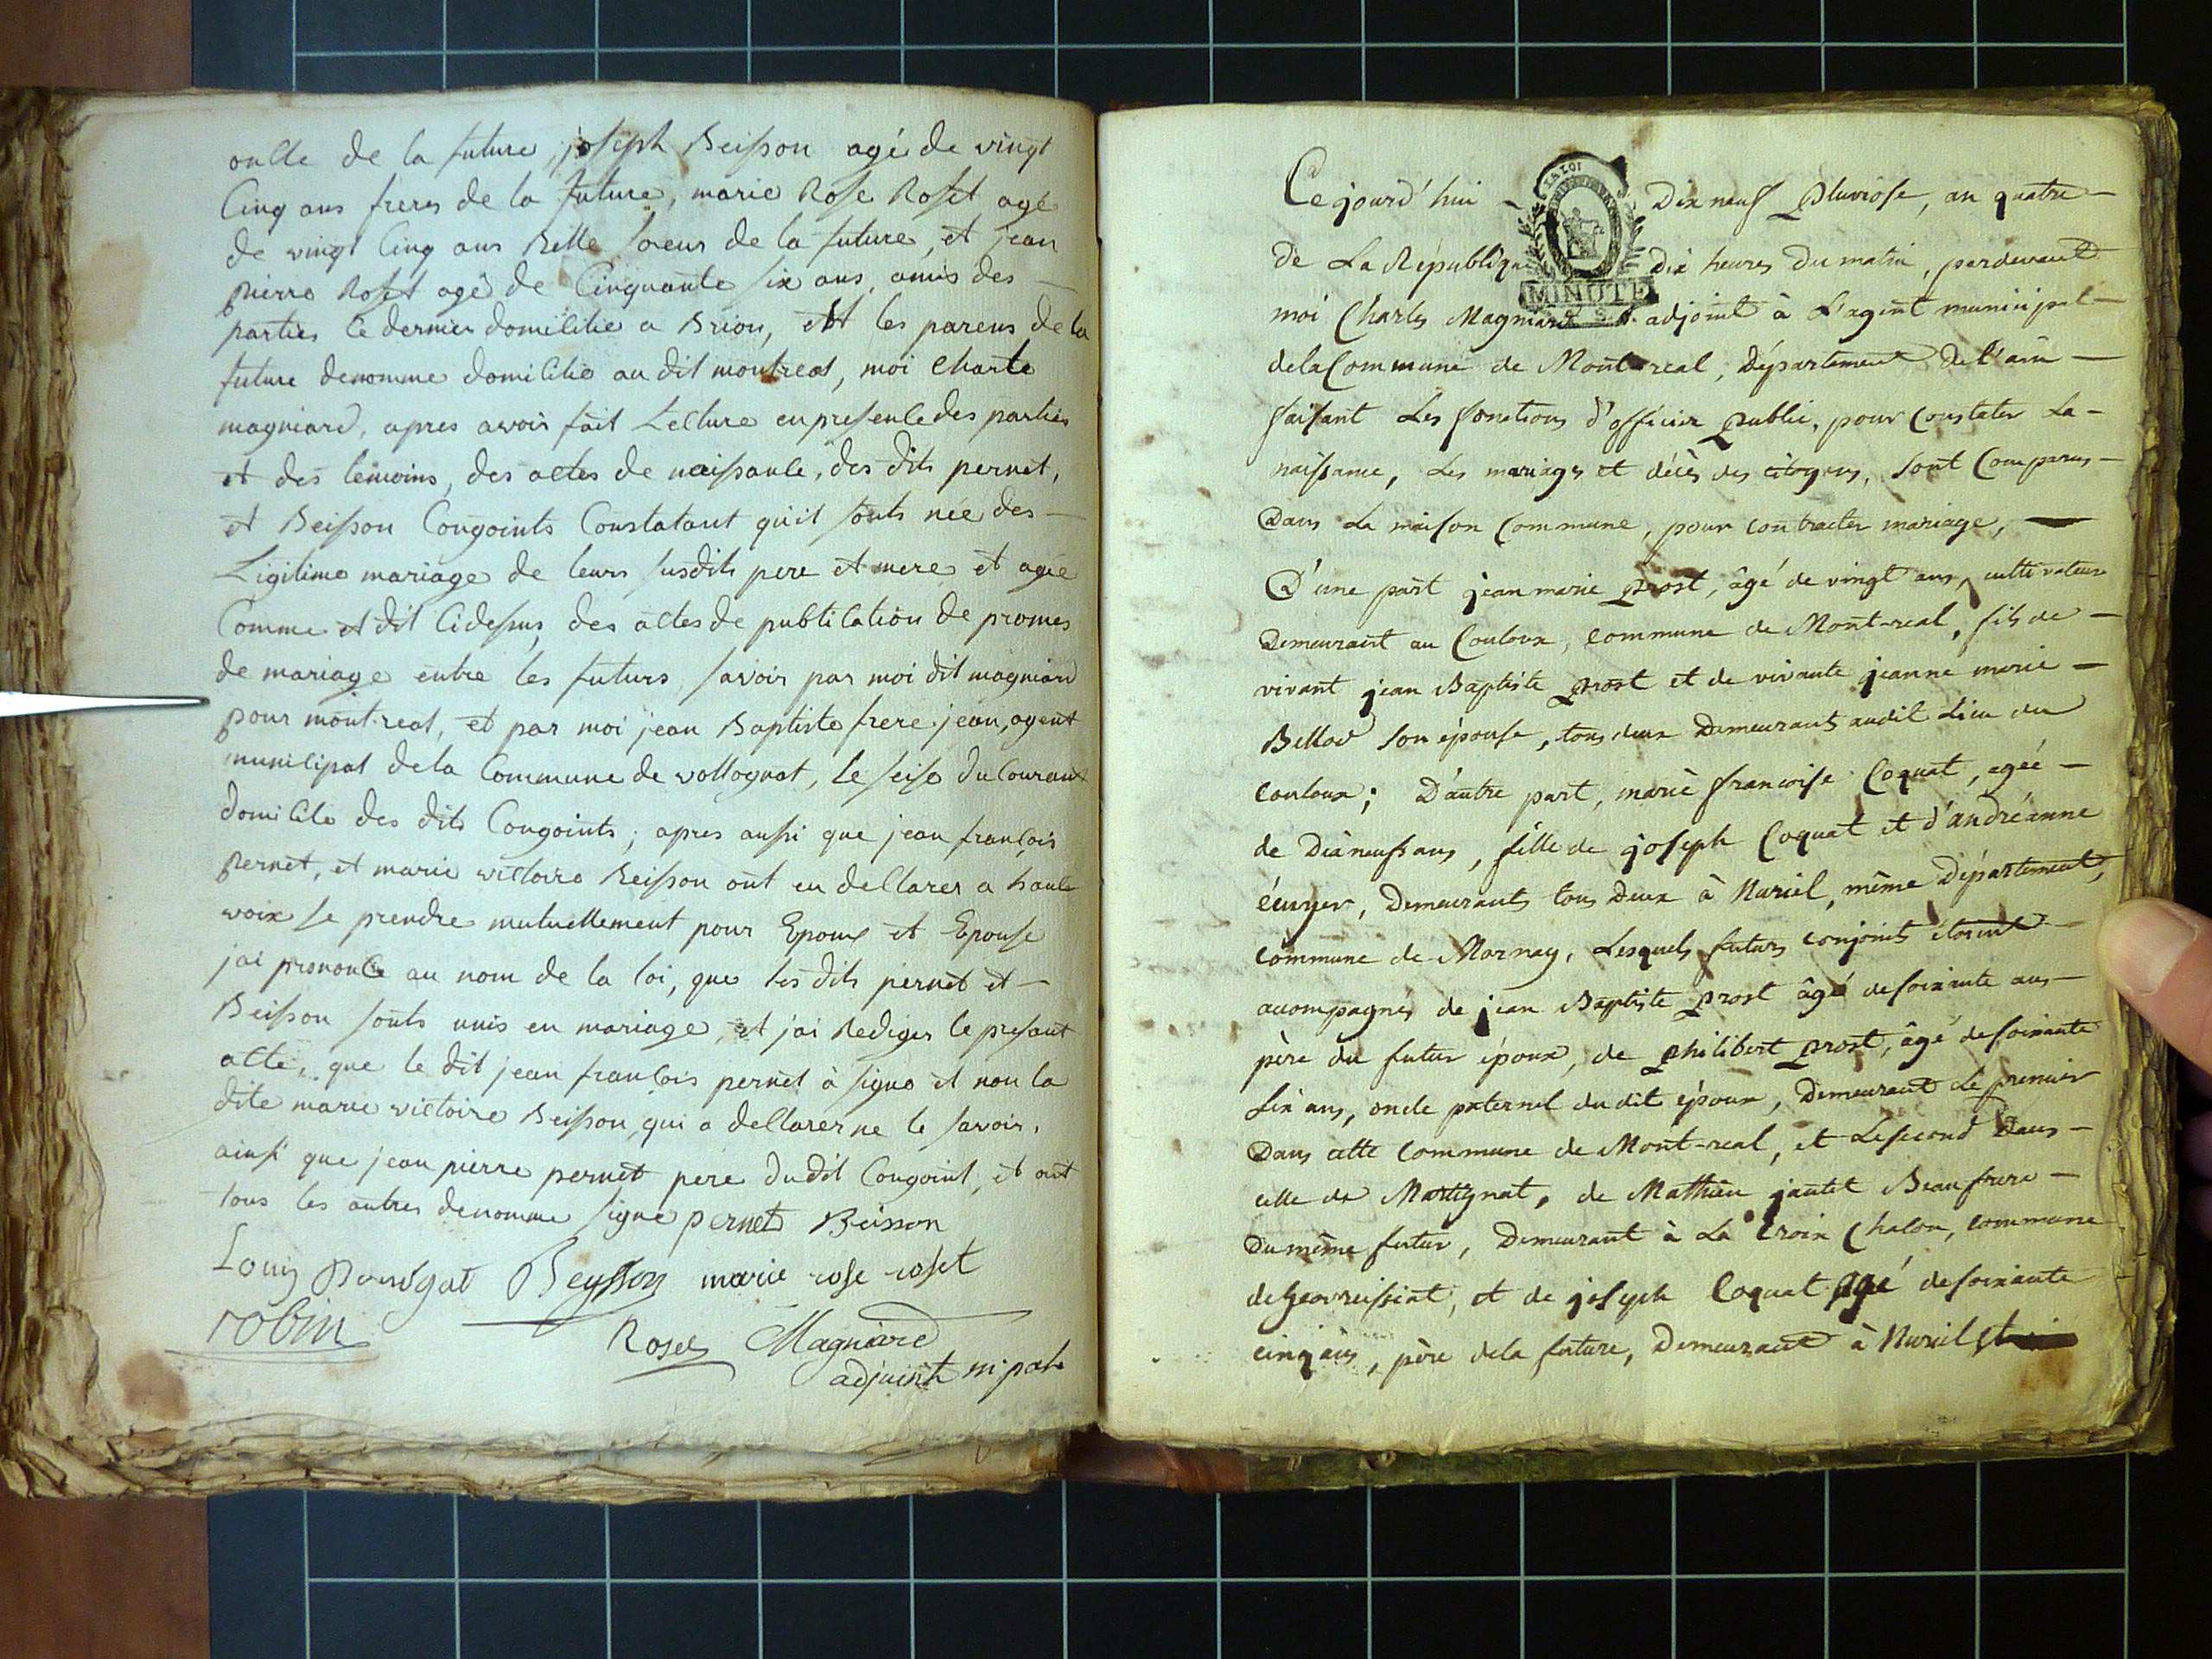 oncle de la future, joseph Beisson agé de vingt
Cinq ans freres de la future, marie Rose Roset agé
de vingt Cinq ans Belle soeur de la future, et jean
pierre Roset agé de Cinquante six ans, amis des —
parties le dernier domicilié a Brion, et les parens de la
future denommé domicilié au dit montreal, moi Charle
magniard, apres avoir fait Lecture en presence des parties
et des temoins, des actes de naissance, des dits pernet,
et Beisson Congoints Constatant qu'il sonts née des —
Ligitime mariage de leurs susdits pere et mere et agée
Comme et dit Cidessus, des actes de publication de promes
de mariage entre les futurs, savoir par moi dit magniard
pour montreal, et par moi jean Baptiste frere-jean, agent
municipal dela Commune de vollognat, le seise du Courant
domicile des dits Congoints; apres aussi que jean françois
pernet, et marie victoire Beisson ont eu declarer a haute
voix se prendre mutuellement pour Epoux et Epouse
jai prononcé au nom de la loi, que les dits pernet et —
Beisson sonts unis en mariage, et jai Rediger le presant
acte, que le dit jean françois pernet à signe et non la
dite marie victoire Beisson, qui a declarer ne le savoir,
ainsi que jean pierre pernet pere dudit Congoint, et ont
tous les autres denomme signe pernet Beisson
Louis Beysson marie rose roset
robin Roset Magniard
adjoint m.pal
Ce jourd'hui — Dix neuf Pluviose, an quatre —
de La République dix heures du matin, pardevant
moi Charles Magniard adjoint à L'agent municipal —
dela Commune de Mont-real, Département de l'ain —
faisant Les fonctions d'officier Public, pour Constater La —
naissance, Les mariages et décès des citoyens, sont Comparus —
Dans La maison Commune, pour contracter mariage, —
D'une part jean marie Prost, âgé de vingt ans, cultivateur
Demeurant au Couloux, commune de Mont-real, fils de —
vivant jean Baptiste Prost et de vivante jeanne marie —
Billod son épouse, tous deux Demeurants audit Lieu du
Couloux; D'autre part, marie francoise Coquat, agée —
de Dixneuf ans, fille de joseph Coquat et d'andréanne
écuyer, Demeurants tous Deux à Nuriel, même Département,
commune de Mornay, Lesquels futurs conjoints étoient —
acompagnés de jean Baptiste Prost âgé de soixante ans —
père du futur époux, de Philibert Prost, âgé de soixante
six ans, oncle paternel du dit époux, Demeurant Le premier
Dans cette Commune de Mont-real, et Le second Dans —
celle de Martignat, de Mathieu jantet Beaufrere —
Du même futur, Demeurant à La Croix Chalon, commune
de Geovreissiat, et de joseph Coquat agé de soixante
cinq ans, père dela future, Demeurant à Nuriel et
LA LOI
MINUTE